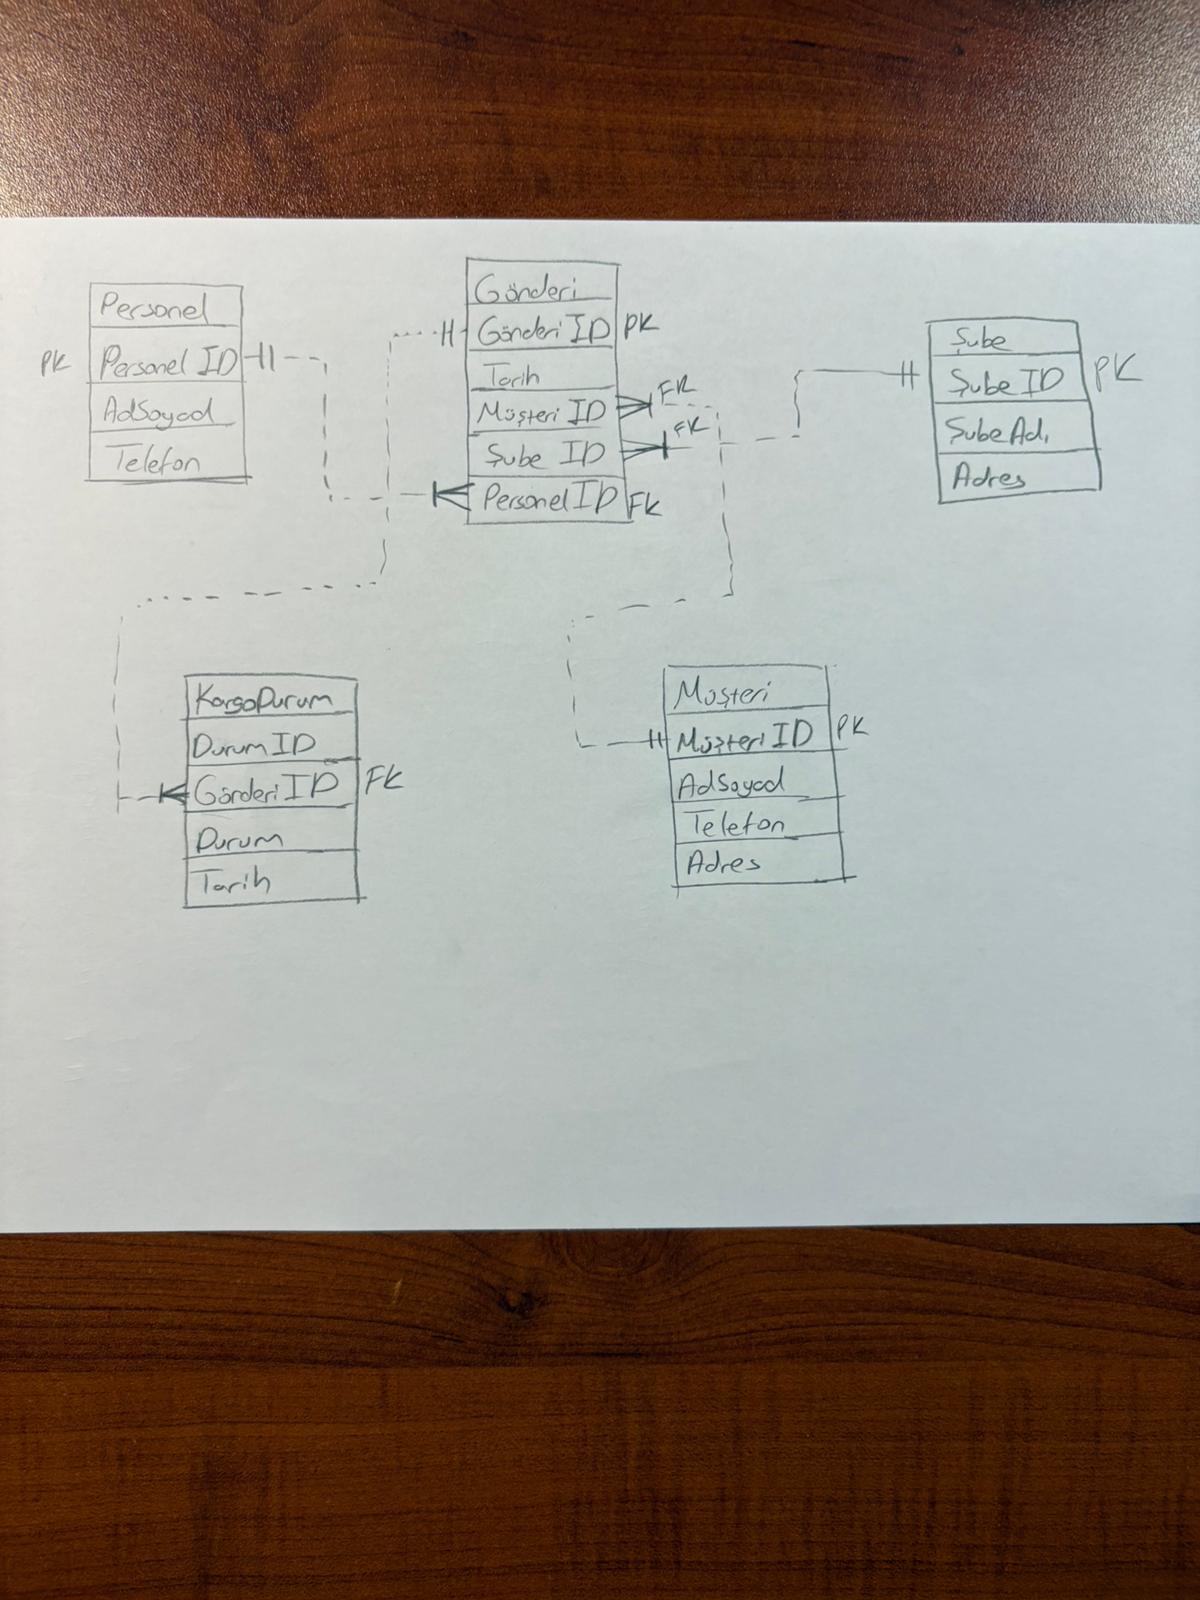 Personel
PK Personel ID
AdSoyad
Telefon
Gönderi
Gönderi ID PK
Tarih
Müşteri ID FK
Şube ID FK
Personel ID FK
Şube
Şube ID PK
Şube Adı
Adres
KargoDurum
Durum ID
Gönderi ID FK
Durum
Tarih
Müşteri
Müşteri ID PK
AdSoyad
Telefon
Adres